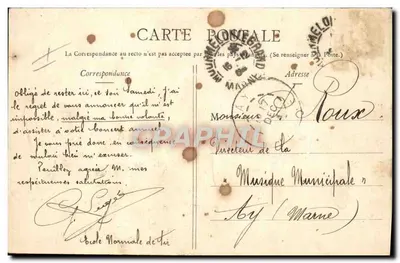 CARTE POSTALE
La Correspondance au recto n'est pas acceptée par (Se renseigner Poste.)
Correspondance
Adresse
Obligé de rester ici, ce soir Samedi, j'ai
le regret de vous annoncer qu'il m'est
impossible, malgré ma bonne volonté,
d'assister à votre concert annuel.
Je vous prie donc, en conséquence
de vouloir bien m'excuser.
Veuillez agréer, M. mes
respectueuses salutations.
Ecole Normale de Tir
Monsieur Roux
Directeur de la
"Musique Municipale"
Ay (Marne)
MOURMELON-LE-GRAND
MARNE